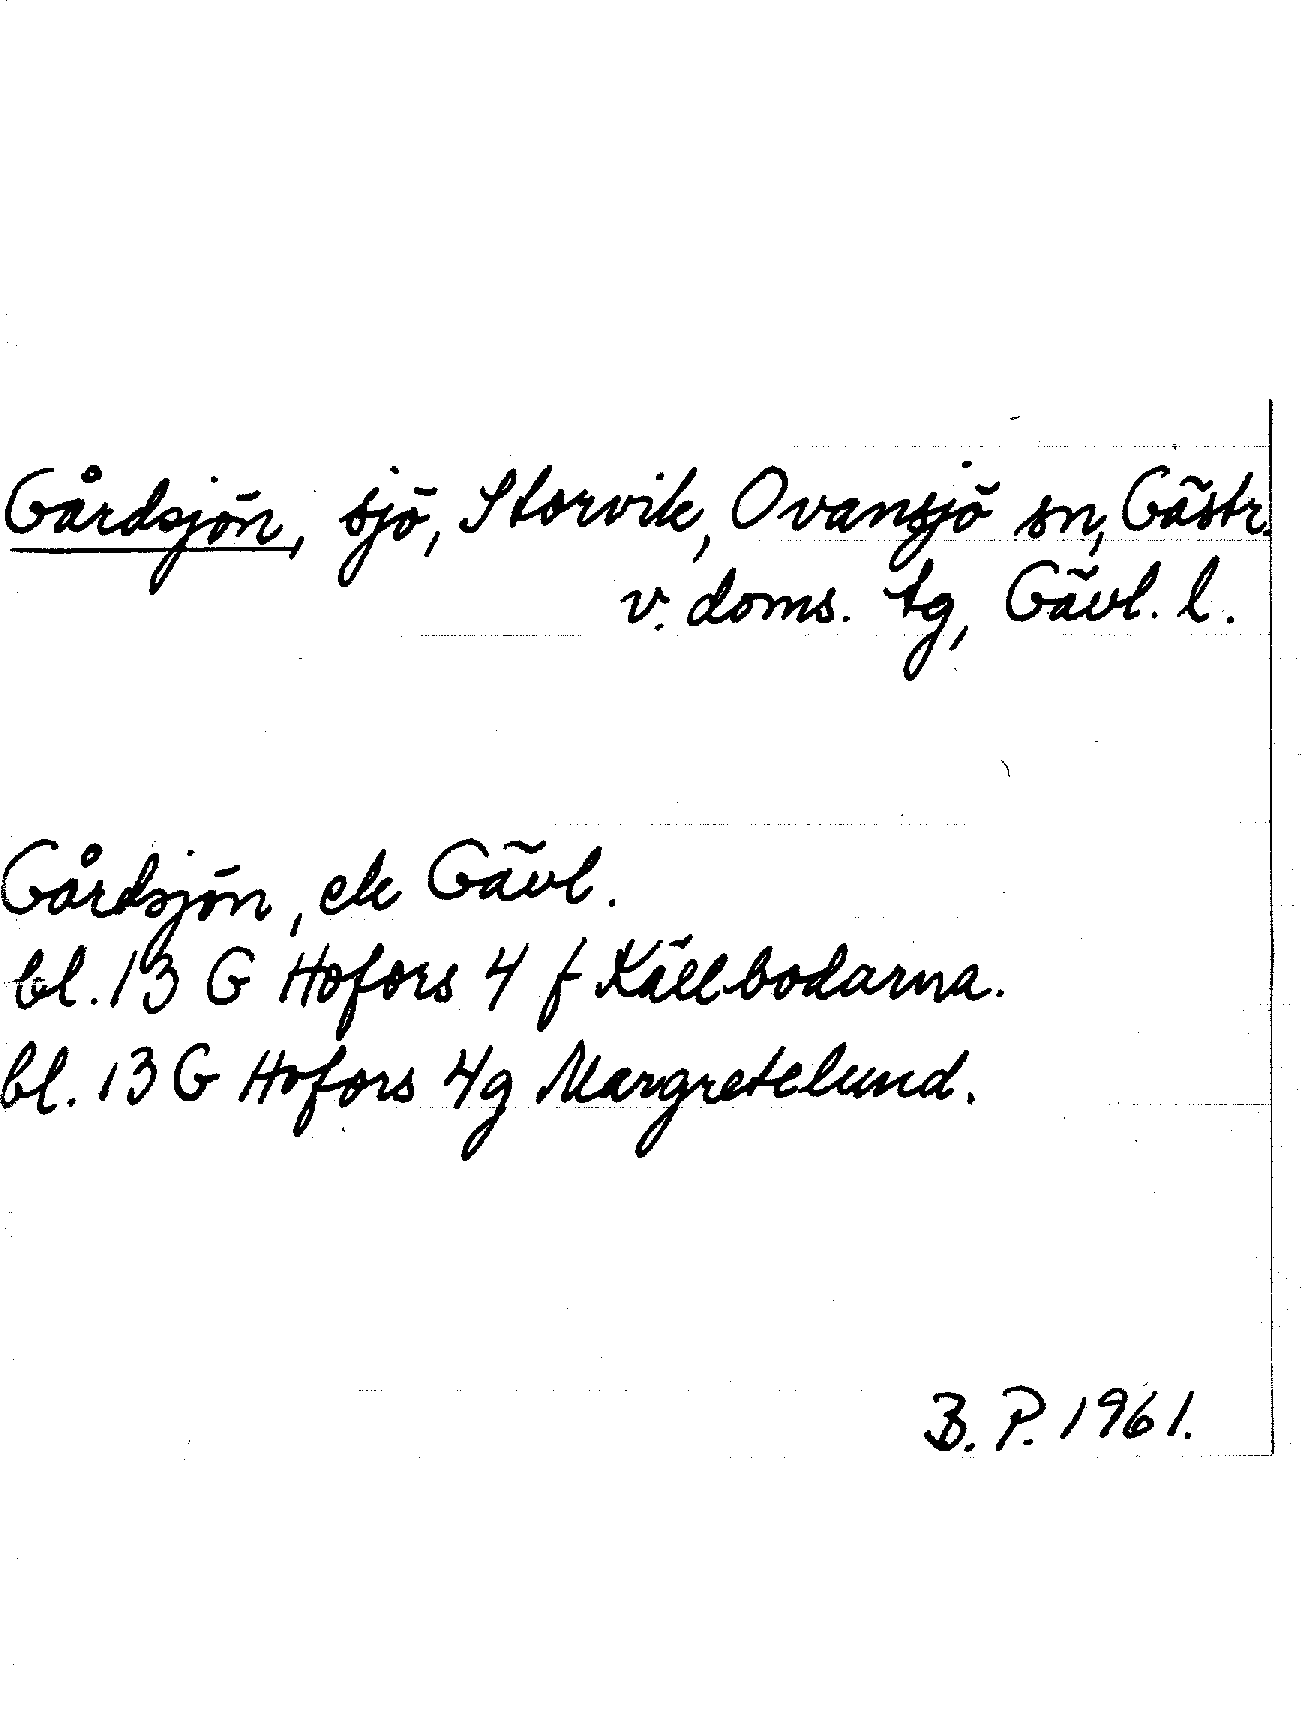 Gårdsjön, sjö, Storvik, Ovansjö sn, Gästr.
v. doms. tg, Gävl. l.
Gårdsjön, ek Gävl.
bl. 13 G Hofors 4 f Källbodarna.
bl. 13 G Hofors 4g Margretelund.
B. P. 1961.